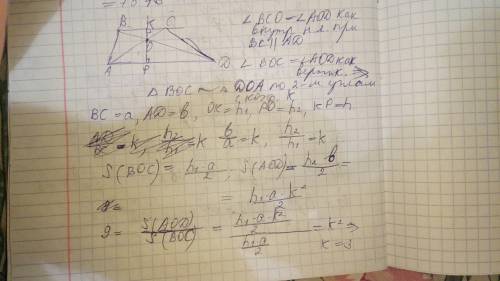 = 15
B K C
O
A P D
∠BCO = ∠AOD как
внутр. н.л. при
BC || AD
∠BOC = ∠AOD как
вертик. ⇒
Δ BOC ~ Δ DOA по 2-м углам
BC = a, AD = b, OK = h₁, PO = h₂, KP = h
= k, h₂/h₁ = k b/a = k, h₂/h₁ = k
S(BOC) = h₁·a/2, S(AOD) = h₂·b/2 =
= h₁·a·k²/2
9 = S(AOD)/S(BOC) = (h₁·a·k²/2)/(h₁·a/2) = k² ⇒
k = 3